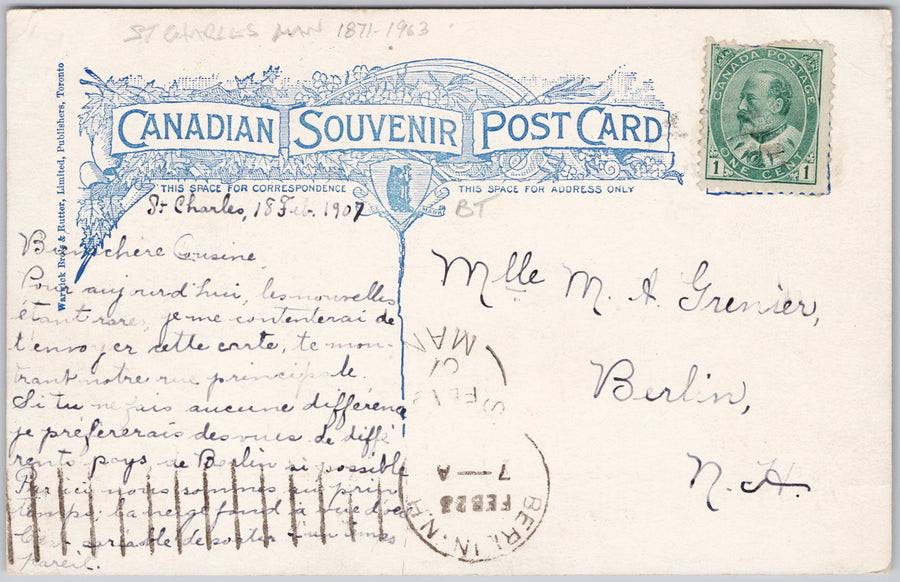 ST CHARLES MAN 1871-1963
CANADIAN SOUVENIR POST CARD
Warwick Bro's & Rutter, Limited, Publishers, Toronto
THIS SPACE FOR CORRESPONDENCE
THIS SPACE FOR ADDRESS ONLY
CANADA POSTAGE
1 ONE CENT 1
BT
St Charles, 18 Feb. 1907
Bien chère Cousine
Pour aujourd'hui, les nouvelles
étant rares, je me contenterai de
t'envoyer cette carte, te mon-
trant notre rue principale.
Si tu ne fais aucune différence
je préfèrerais des vues de diffé
rents pays de Berlin si possible
Par ici nous sommes au prin
temps la neige fond à vue d'oeil
de sortir
pareil.
Mlle M. A. Grenier,
Berlin,
N. H.
MAN
BERLIN. N.H.
FEB 23
7-A